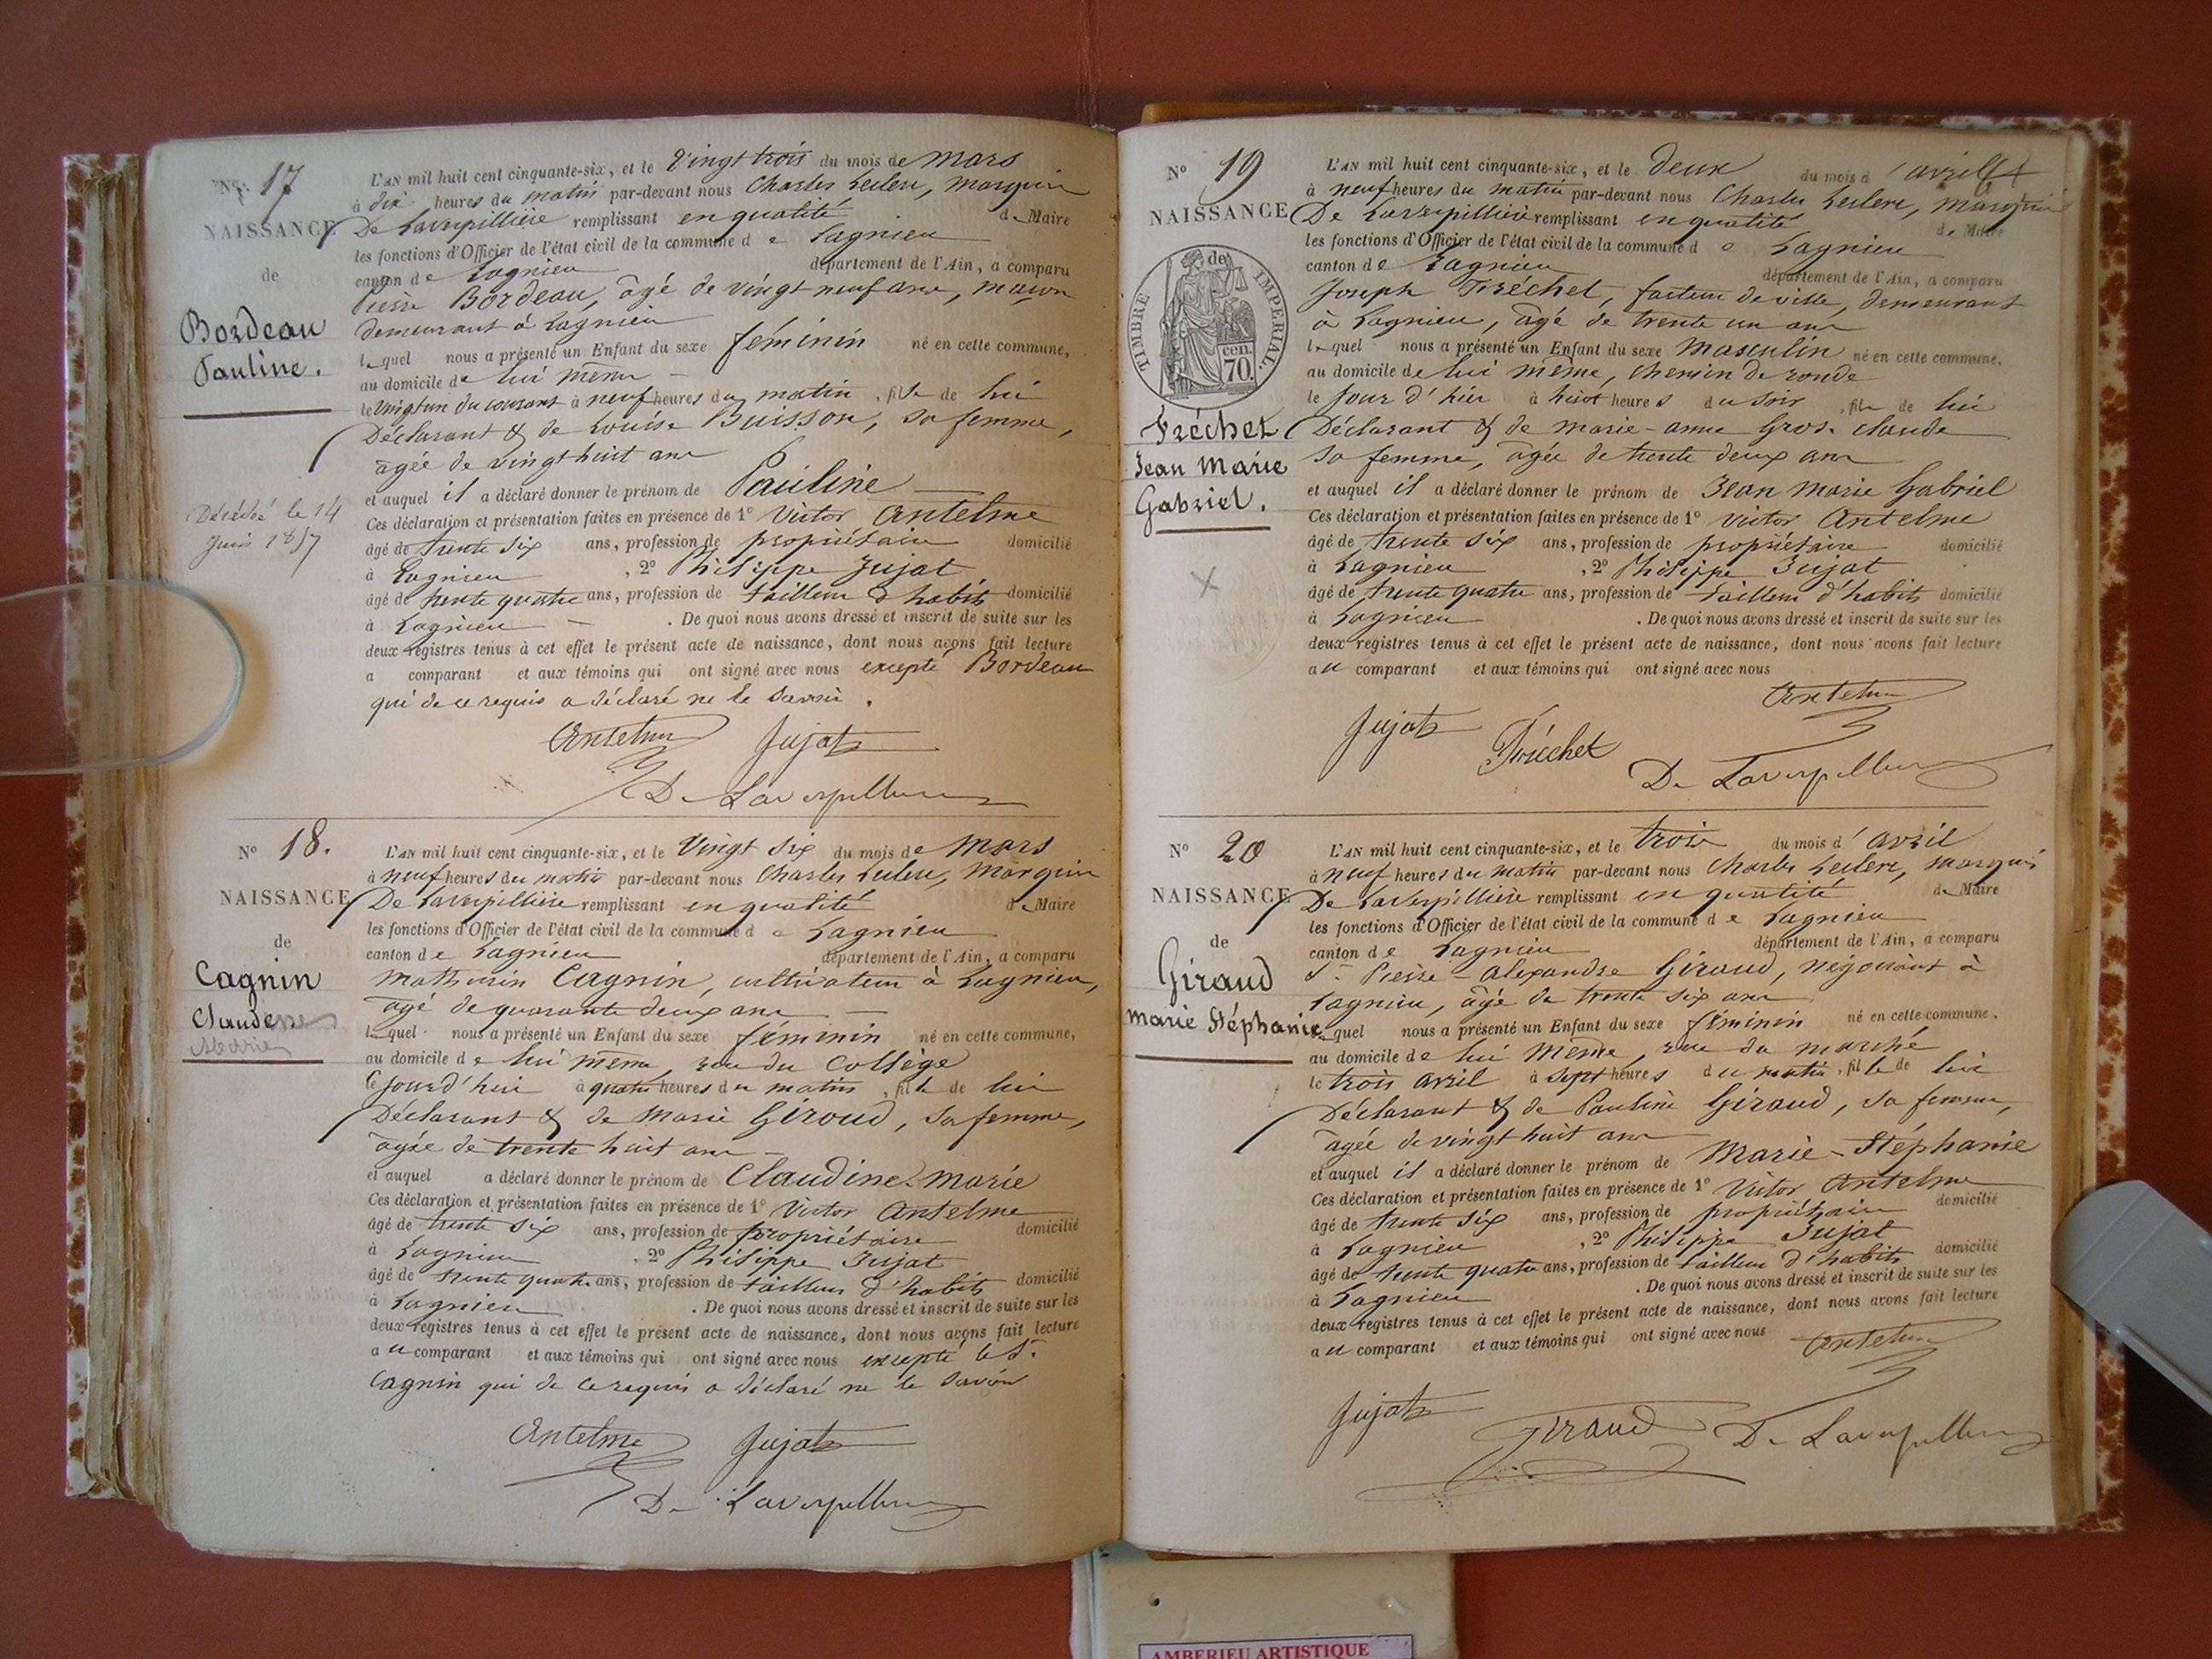 N° 17
NAISSANCE
de
Bordeau
Pauline.
Décédé le 14
juin 1857
L'AN mil huit cent cinquante-six, et le Vingt trois du mois de Mars
à dix heures du matin par-devant nous Charles Leclerc, Marquis
De Laverpillière remplissant en qualité de Maire
les fonctions d'Officier de l'état civil de la commune de Lagnieu
canton de Lagnieu département de l'Ain, a comparu
Pierre Bordeau, âgé de vingt neuf ans, maçon
demeurant à Lagnieu
lequel nous a présenté un Enfant du sexe féminin né en cette commune,
au domicile de lui même
le vingt un du courant à neuf heures du matin, fille de lui
Déclarant & de Louise Buisson, sa femme,
agée de vingt huit ans
et auquel il a déclaré donner le prénom de Pauline
Ces déclaration et présentation faites en présence de 1° Victor Antelme
âgé de trente six ans, profession de propriétaire domicilié
à Lagnieu, 2° Philippe Jujat
âgé de trente quatre ans, profession de tailleur d'habits domicilié
à Lagnieu. De quoi nous avons dressé et inscrit de suite sur les
deux registres tenus à cet effet le présent acte de naissance, dont nous avons fait lecture
a comparant et aux témoins qui ont signé avec nous excepté Bordeau
qui de ce requis a déclaré ne le savoir.
Antelme Jujat
De Laverpillière
N° 18.
NAISSANCE
de
Cagnin
Claudine
Marie
L'AN mil huit cent cinquante-six, et le Vingt six du mois de Mars
à neuf heures du matin par-devant nous Charles Leclerc, Marquis
De Laverpillière remplissant en qualité de Maire
les fonctions d'Officier de l'état civil de la commune de Lagnieu
canton de Lagnieu département de l'Ain, a comparu
Mathurin Cagnin, cultivateur à Lagnieu,
agé de quarante deux ans
lequel nous a présenté un Enfant du sexe féminin né en cette commune,
au domicile de lui même, rue du Collège
le jourd'hui à quatre heures du matin, fille de lui
Déclarant & de Marie Giroud, sa femme,
agée de trente huit ans
et auquel a déclaré donner le prénom de Claudine-Marie
Ces déclaration et présentation faites en présence de 1° Victor Antelme
âgé de trente six ans, profession de propriétaire domicilié
à Lagnieu, 2° Philippe Jujat
âgé de trente quatre ans, profession de tailleur d'habits domicilié
à Lagnieu. De quoi nous avons dressé et inscrit de suite sur les
deux registres tenus à cet effet le présent acte de naissance, dont nous avons fait lecture
au comparant et aux témoins qui ont signé avec nous excepté le Sr
Cagnin qui de ce requis a déclaré ne le savoir
Antelme Jujat
De Laverpillière
N° 19
NAISSANCE
de
TIMBRE IMPERIAL.
cen.
70.
Fréchet
Jean Marie
Gabriel.
L'AN mil huit cent cinquante-six, et le deux du mois d'avril
à neuf heures du matin par-devant nous Charles Leclerc, marquis
De Laverpillière remplissant en qualité de Maire
les fonctions d'Officier de l'état civil de la commune de Lagnieu
canton de Lagnieu département de l'Ain, a comparu
Joseph Fréchet, facteur de ville, demeurant
à Lagnieu, âgé de trente un ans
lequel nous a présenté un Enfant du sexe Masculin né en cette commune.
au domicile de lui même, Chemin de ronde
le jour d'hier à huit heures du soir, fils de lui
Déclarant & de Marie-anne Gros-claude
sa femme, agée de trente deux ans
et auquel il a déclaré donner le prénom de Jean Marie Gabriel
Ces déclaration et présentation faites en présence de 1° Victor Antelme
âgé de trente six ans, profession de propriétaire domicilié
à Lagnieu, 2° Philippe Jujat
âgé de trente quatre ans, profession de tailleur d'habits domicilié
à Lagnieu. De quoi nous avons dressé et inscrit de suite sur les
deux registres tenus à cet effet le présent acte de naissance, dont nous avons fait lecture
au comparant et aux témoins qui ont signé avec nous
Antelme
Jujat Fréchet De Laverpillière
N° 20
NAISSANCE
de
Giraud
Marie Stéphanie
L'AN mil huit cent cinquante-six, et le trois du mois d'avril
à neuf heures du matin par-devant nous Charles Leclerc, marquis
De Laverpillière remplissant en qualité de Maire
les fonctions d'Officier de l'état civil de la commune de Lagnieu
canton de Lagnieu département de l'Ain, a comparu
Sr Pierre-alexandre Giraud, négociant à
Lagnieu, âgé de trente six ans
lequel nous a présenté un Enfant du sexe féminin né en cette commune.
au domicile de lui même, rue du marché
le trois avril à sept heures du matin, fille de lui
Déclarant & de Pauline Giraud, sa femme,
agée de vingt huit ans
et auquel il a déclaré donner le prénom de Marie-Stéphanie
Ces déclaration et présentation faites en présence de 1° Victor Antelme
âgé de trente six ans, profession de propriétaire domicilié
à Lagnieu, 2° Philippe Jujat
âgé de trente quatre ans, profession de tailleur d'habits domicilié
à Lagnieu. De quoi nous avons dressé et inscrit de suite sur les
deux registres tenus à cet effet le présent acte de naissance, dont nous avons fait lecture
au comparant et aux témoins qui ont signé avec nous Antelme
Jujat Giraud De Laverpillière
AMBERIEU ARTISTIQUE